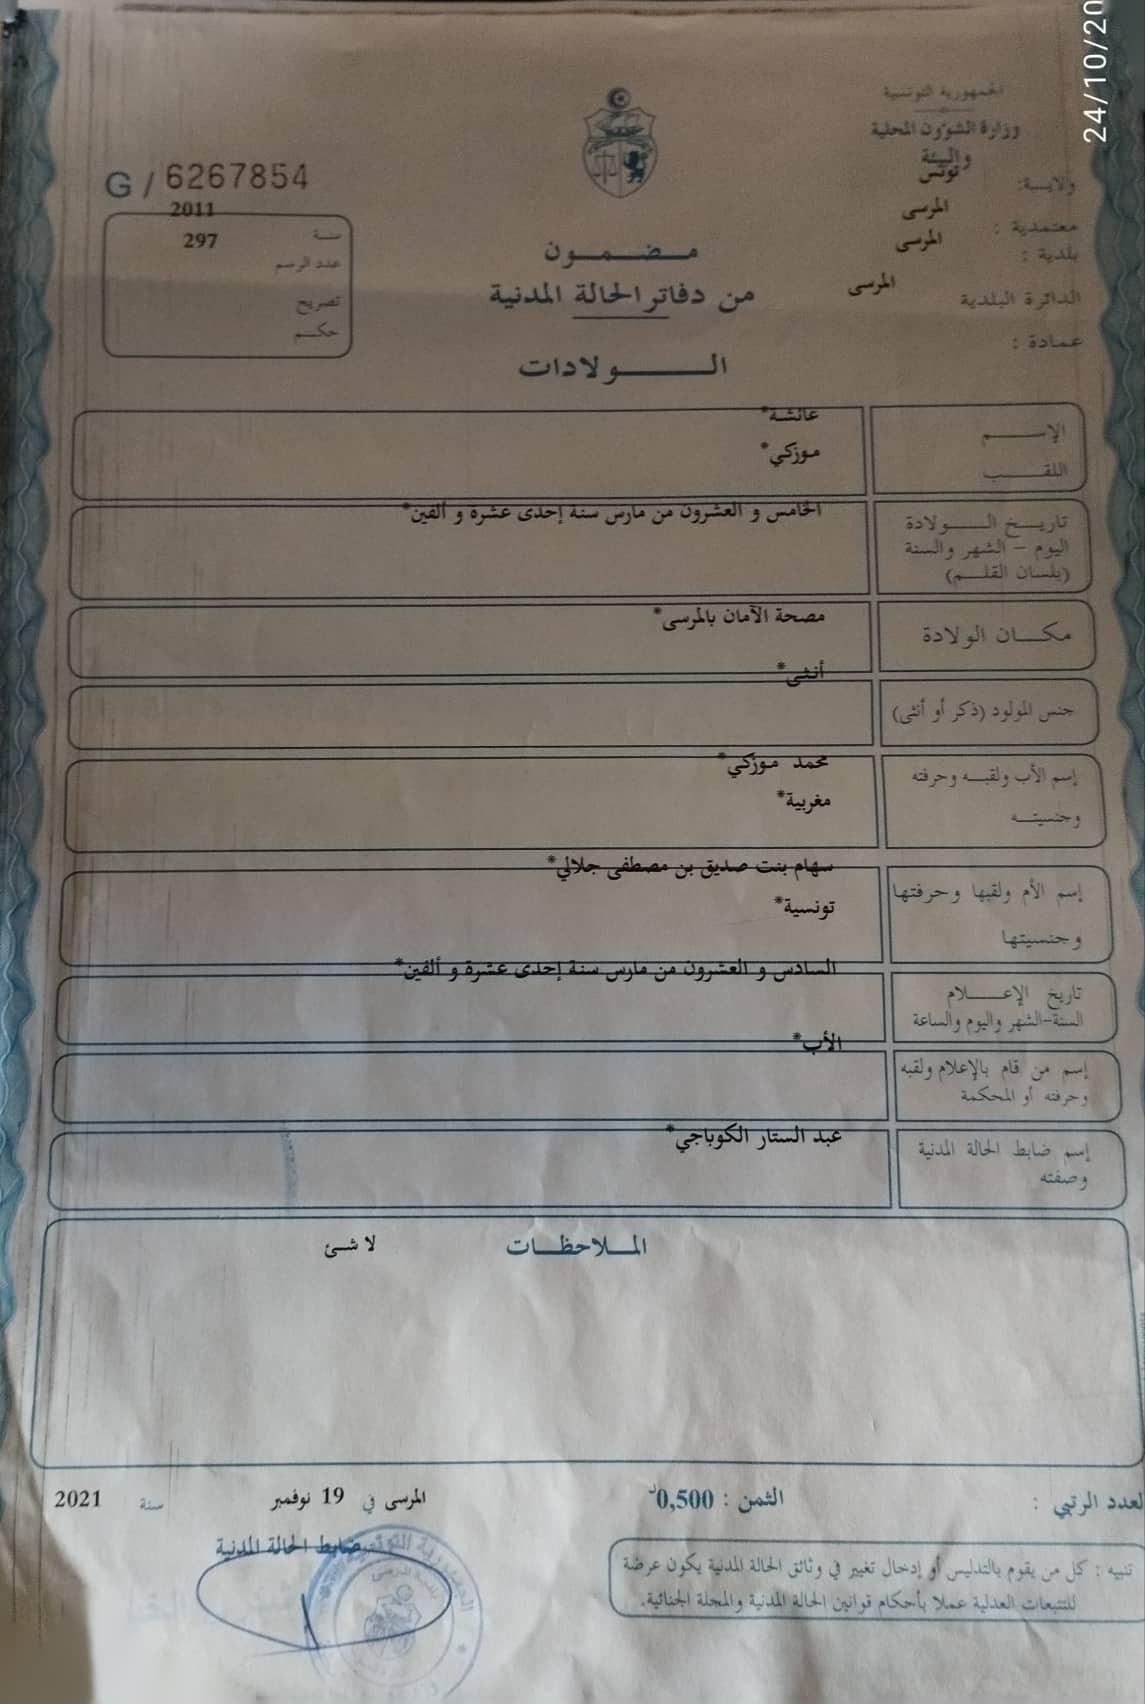 24/10/20
الجمهورية التونسية
وزارة الشؤون المحلية
والبيئة
ولايـــة: تونس
معتمدية : المرسى
بلدية : المرسى
الدائرة البلدية المرسى
عمادة :
G / 6267854
سنة 2011
عدد الرسم 297
تصريح
حكـــم
مـــضـــمـــون
من دفاتر الحالة المدنية
الـــــولادات
الإســـــم عائشة*
اللقـــب موزكي*
تاريـــخ الـــولادة الخامس و العشرون من مارس سنة إحدى عشرة و ألفين*
اليوم – الشهر والسنة
(بلسان القلـــم)
مكـــان الولادة مصحة الآمان بالمرسى*
جنس المولود (ذكر أو أنثى) أنثى*
إسم الأب ولقبـــه وحرفته محمد موزكي*
وجنسيتـــه مغربية*
إسم الأم ولقبها وحرفتها سهام بنت صديق بن مصطفى جلالي*
وجنسيتها تونسية*
تاريخ الإعـــــلام السادس و العشرون من مارس سنة إحدى عشرة و ألفين*
السنة-الشهر واليوم والساعة
إسم من قام بالإعلام ولقبه الأب*
وحرفته أو المحكمة
إسم ضابط الحالة المدنية عبد الستار الكوباجي*
وصفته
المـــلاحظـــات لا شئ
لعدد الرتبي : الثمن : 0,500د المرسى في 19 نوفمبر سنة 2021
ضابط الحالة المدنية
تنبيه : كل من يقوم بالتدليس أو إدخال تغيير في وثائق الحالة المدنية يكون عرضة
للتتبعات العدلية عملا بأحكام قوانين الحالة المدنية والمجلة الجنائية.